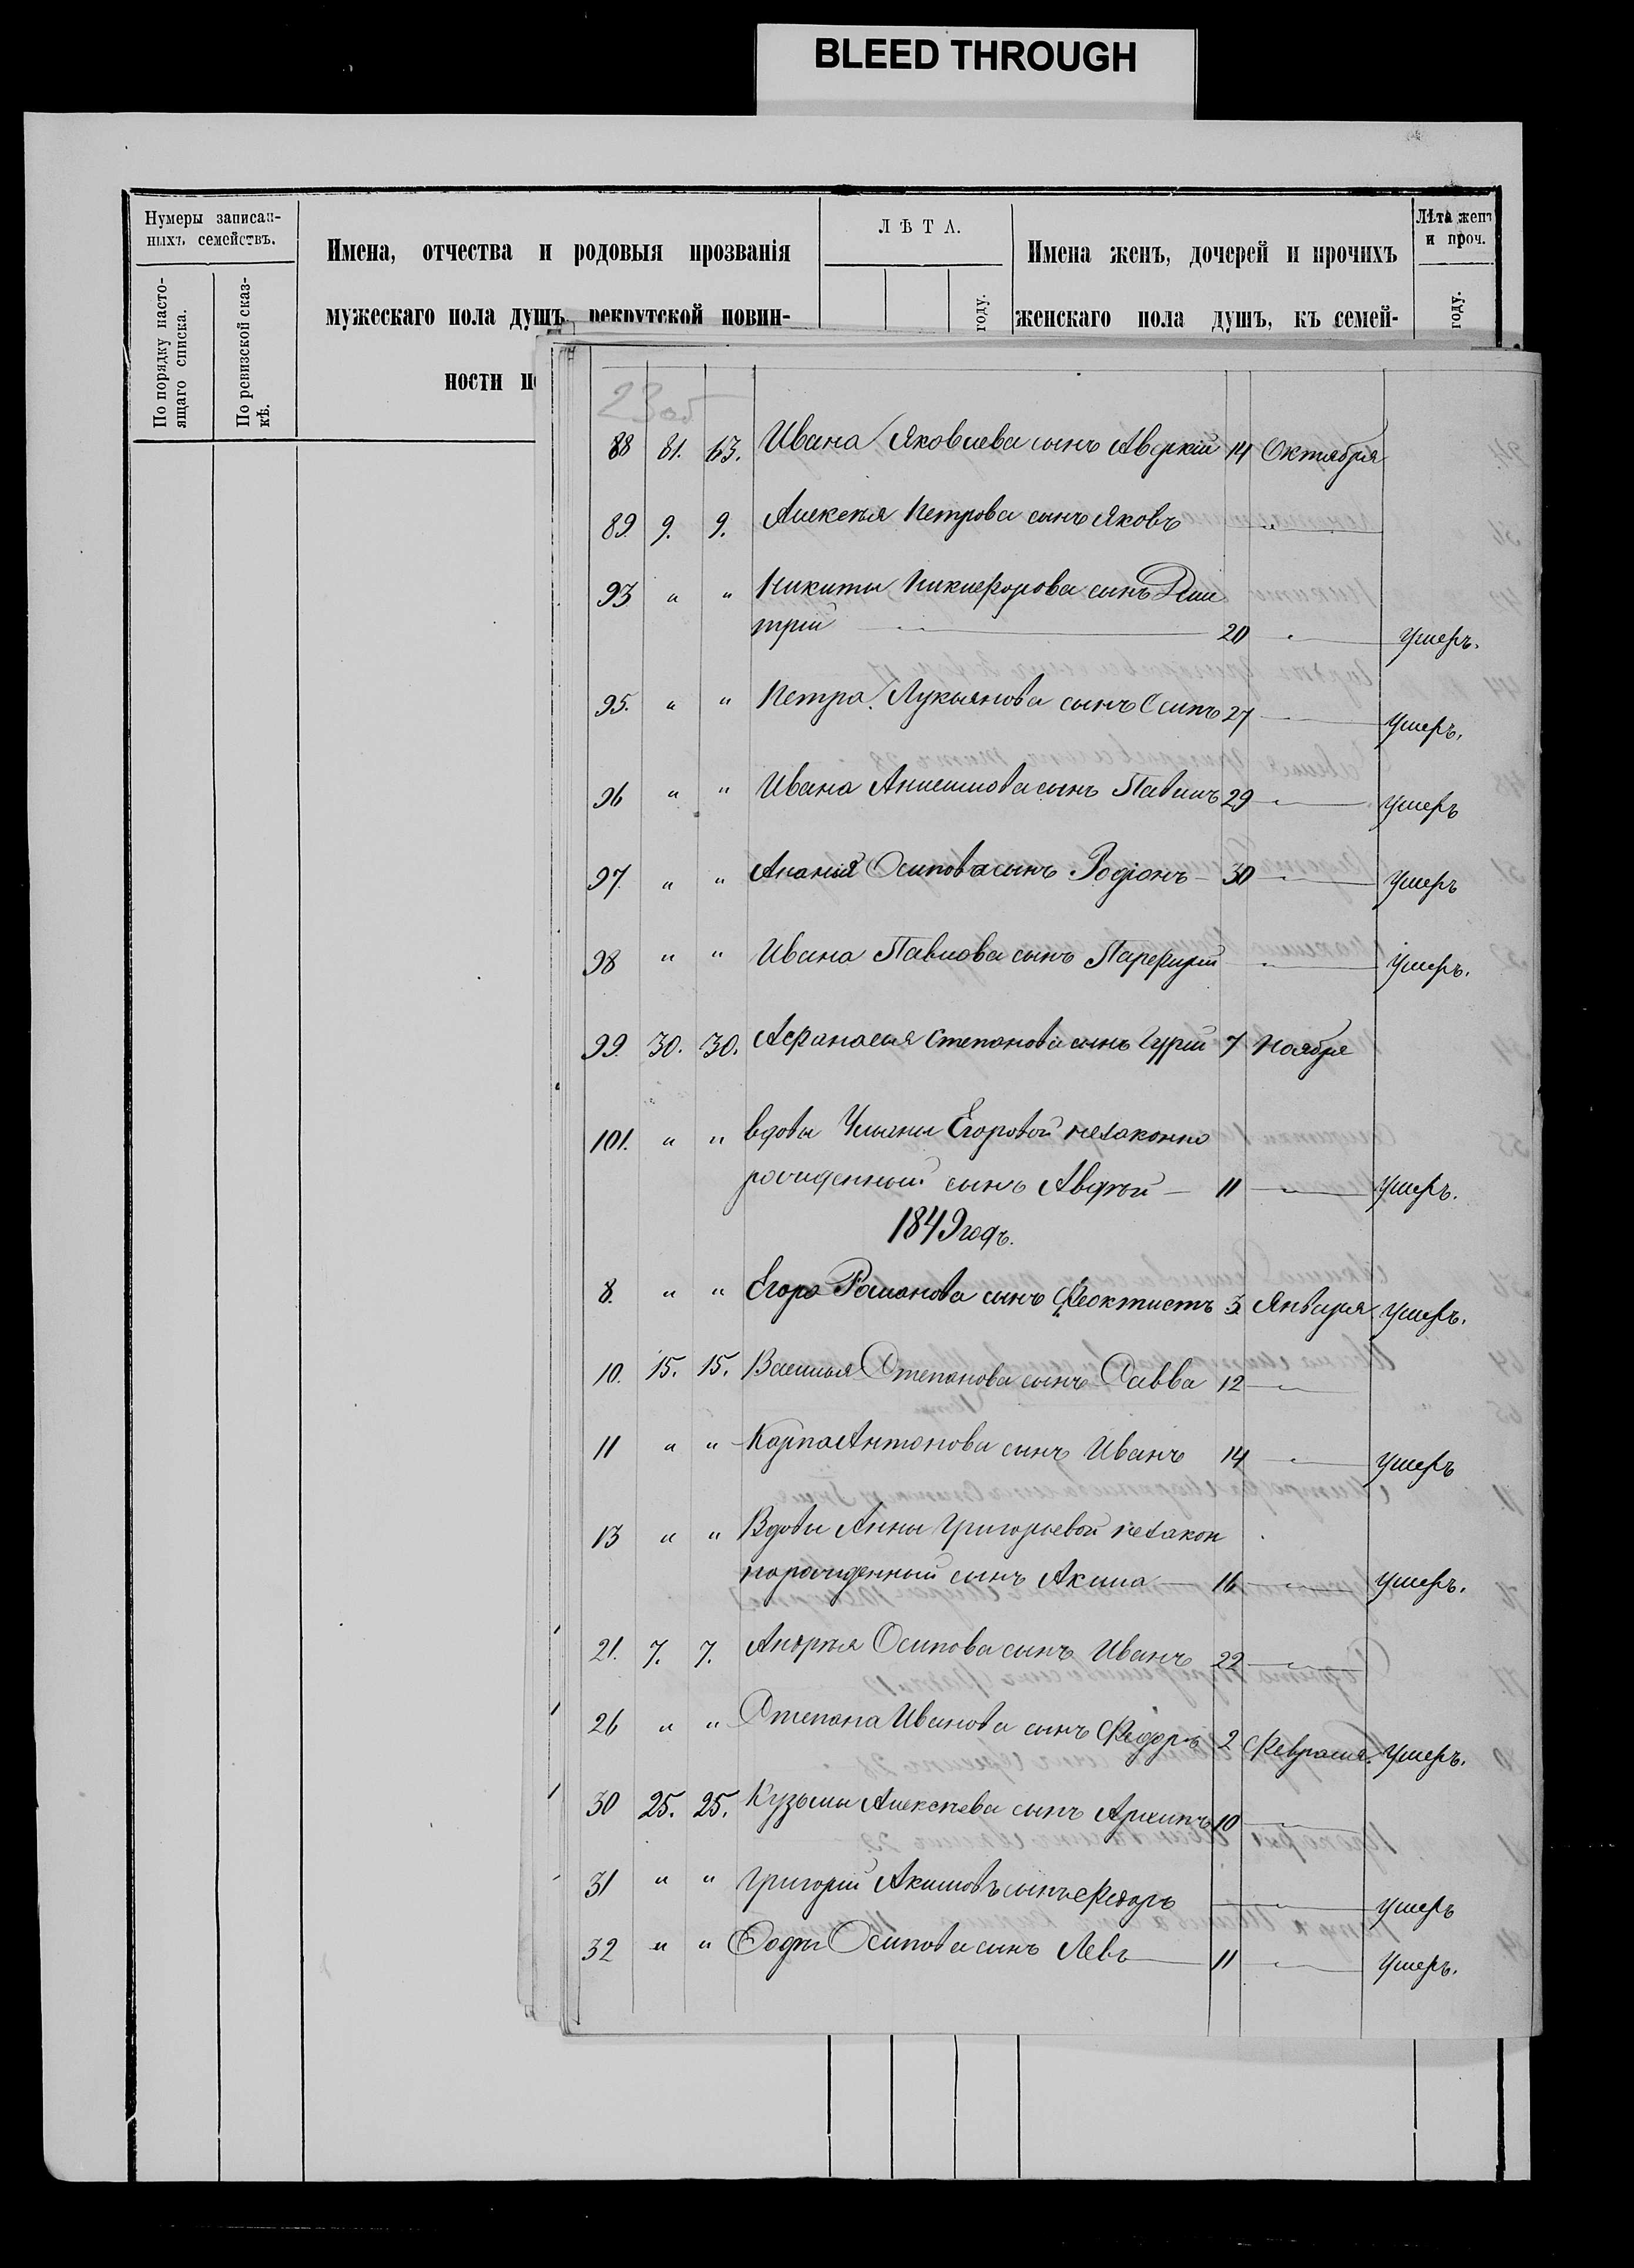 BLEED THROUGH
Нумеры записан-
ныхъ семействъ.
По порядку насто-
ящаго списка.
По ревизской сказ-
кѣ.
Имена, отчества и родовыя прозванія
мужескаго пола душъ, рекрутской повин-
ности
ЛѢТА.
году.
Имена женъ, дочерей и прочихъ
женскаго пола душъ, къ семей-
Лѣта женъ
и проч.
году.
23 об
88 81. 63. Ивана Яковлева сынъ Аверкій 14 Октября
89. 9. 9. Алексѣя Петрова сынъ Яковъ "
93 " " Никиты Никифорова сынъ Дми
трій 20 " Умеръ.
95. " " Петра Лукьянова сынъ Осипъ 27 Умеръ.
96 " " Ивана Анисимова сынъ Павелъ 29 " Умеръ
97. " " Ананія Осипова сынъ Родіонъ 30 " Умеръ
98 " " Ивана Павлова сынъ Парфирій " Умеръ.
99. 30. 30. Афанасія Степанова сынъ Гурій 7 Ноября
101. " " вдовы Ульяны Егоровой незаконно
рожденный сынъ Авдѣй 11 " Умеръ.
1849 годъ.
8. " " Егора Романова сынъ Феоктистъ 3 Января Умеръ.
10. 15. 15. Василья Степанова сынъ Савва 12 "
11 " " Карпа Антонова сынъ Иванъ 14 " Умеръ
13 " " Вдовы Анны Григорьевой незакон
норожденный сынъ Акима 16 " Умеръ.
21. 7. 7. Андрѣя Осипова сынъ Иванъ 22 "
26 " " Степана Иванова сынъ Фёдоръ 2 Февраля Умеръ.
30 25. 25. Кузьмы Алексѣева сынъ Архипъ 10 "
31 " " Григорій Акимовъ сынъ Федоръ " Умеръ
32 " " Осипова сынъ Левъ 11 " Умеръ.